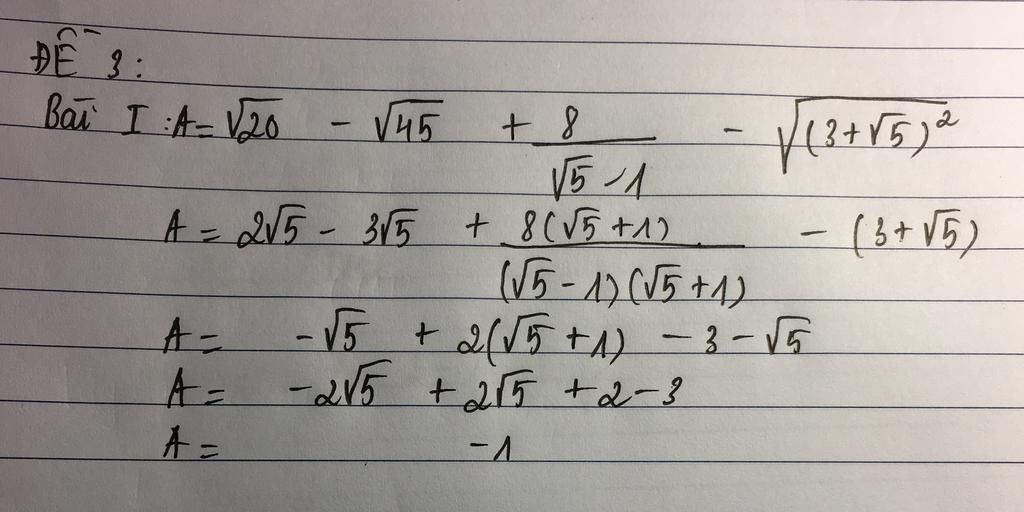 ĐỀ 3:
Bài I : A = √20 - √45 + 8/(√5 - 1) - √((3 + √5)²)
A = 2√5 - 3√5 + 8(√5 + 1)/((√5 - 1)(√5 + 1)) - (3 + √5)
A = -√5 + 2(√5 + 1) - 3 - √5
A = -2√5 + 2√5 + 2 - 3
A = -1